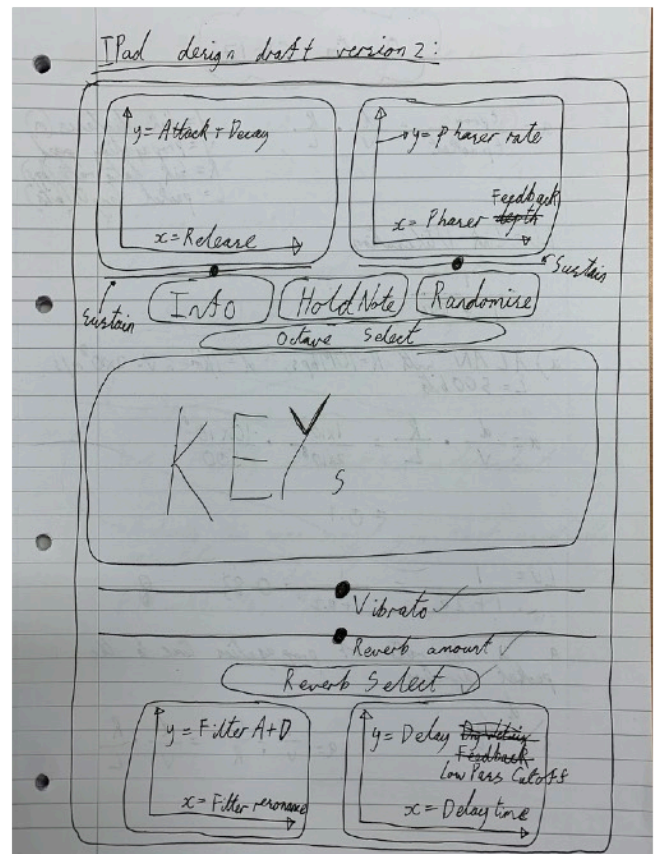 IPad design draft version 2:
y = Attack + Decay
x = Release
y = Phaser rate
Feedback
x = Phaser depth
Sustain
Sustain
Info
Hold Note
Randomise
Octave Select
KEYs
Vibrato ✓
Reverb amount ✓
Reverb Select ✓
y = Filter A+D
x = Filter resonance
y = Delay
Feedback
Low Pass Cutoff
x = Delay time